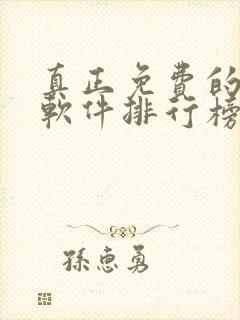 真正免費的
軟件排行榜
孫惠勇